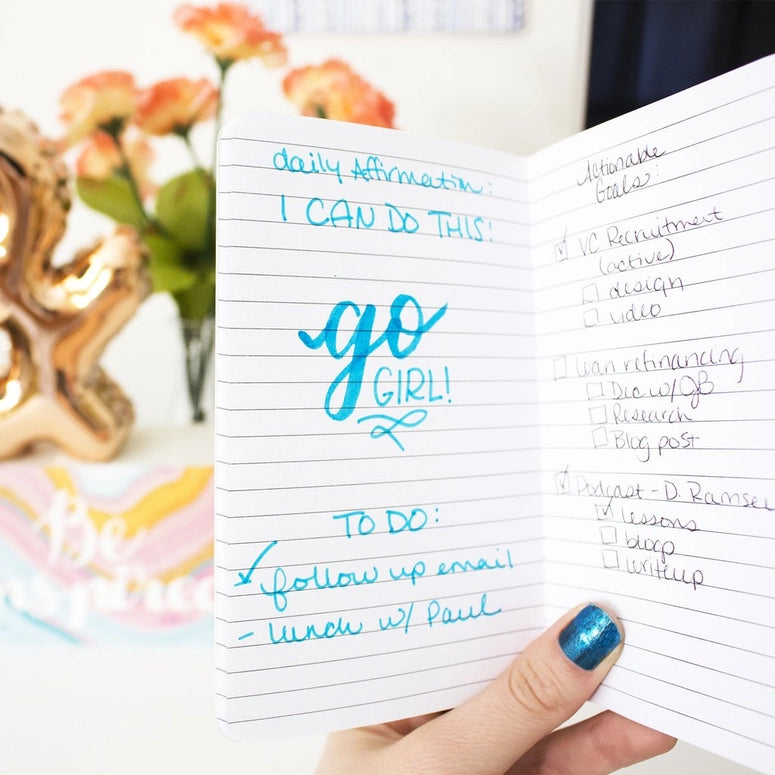 daily Affirmation:
I CAN DO THIS!
go
GIRL!
TO DO:
follow up email
- lunch w/ Paul
Actionable
Goals:
VC Recruitment
(active)
design
video
loan refinancing
w/
Research
Blog post
Podcast - D. Ramsey
lessons
blog
writeup
Be
nspired